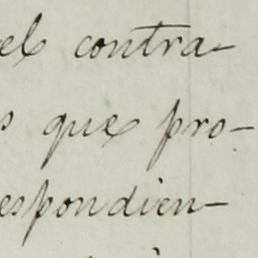 el contra-
s que pro-
espondien-